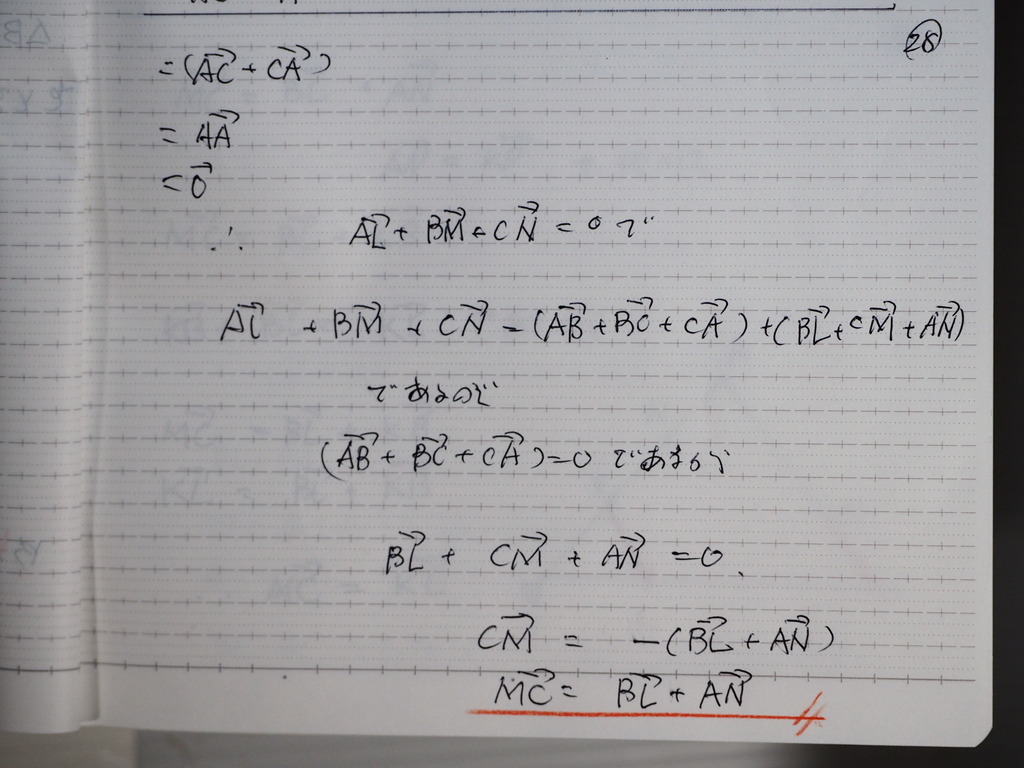 28
= (AC→ + CA→)
= AA→
= 0→
∴ AL→ + BM→ + CN→ = 0 で
AL→ + BM→ + CN→ = (AB→ + BC→ + CA→) + (BL→ + CM→ + AN→)
であるので
(AB→ + BC→ + CA→) = 0 であるので
BL→ + CM→ + AN→ = 0.
CM→ = -(BL→ + AN→)
MC→ = BL→ + AN→